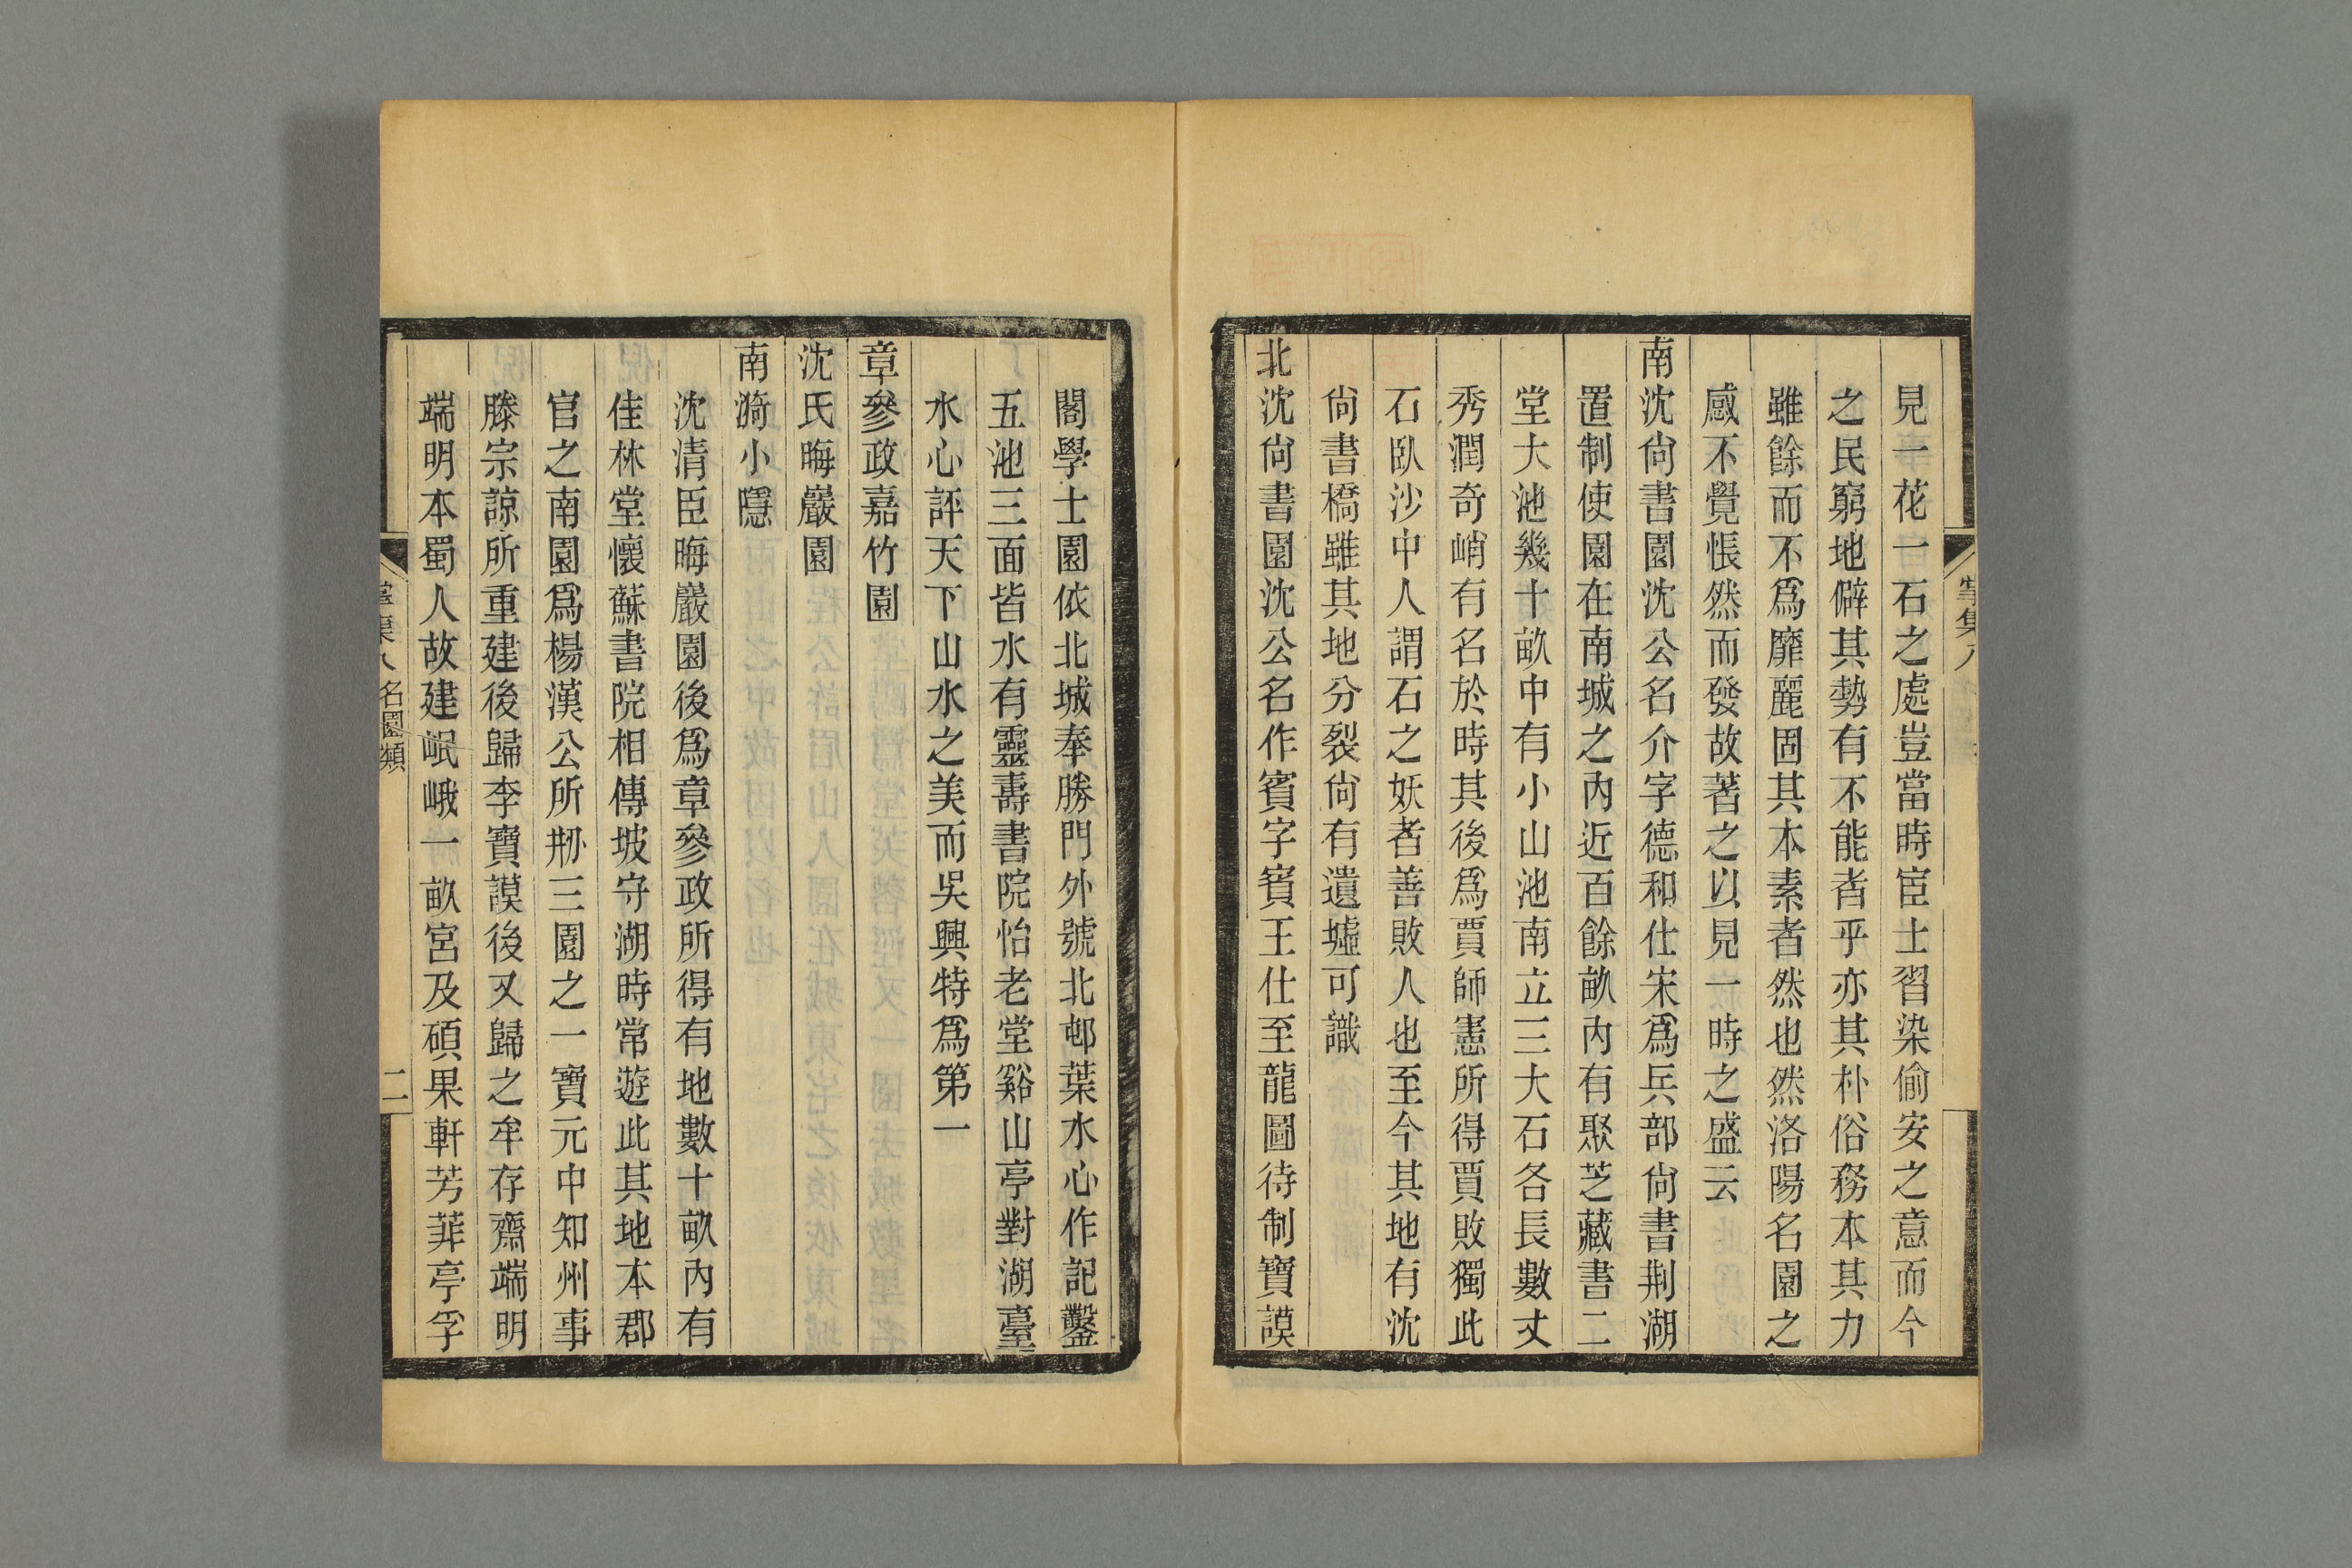 見一花一石之處豈當時宦士習染偷安之意而今
之民窮地僻其勢有不能者乎亦其朴俗務本其力
雖餘而不爲靡麗固其本素者然也然洛陽名園之
感不覺悵然而發故著之以見一時之盛云
南沈尙書園沈公名介字德和仕宋爲兵部尙書荆湖
置制使園在南城之內近百餘畝內有聚芝藏書二
堂大池幾十畝中有小山池南立三大石各長數丈
秀潤奇峭有名於時其後爲賈師憲所得賈敗獨此
石臥沙中人謂石之妖者善敗人也至今其地有沈
尙書橋雖其地分裂尙有遺墟可識
北沈尙書園沈公名作賓字賓王仕至龍圖待制寶謨
閣學士園依北城奉勝門外號北邨葉水心作記鑿
五池三面皆水有靈壽書院怡老堂谿山亭對湖臺
水心評天下山水之美而吳興特爲第一
章參政嘉竹園
沈氏晦巖園
南漪小隱
沈清臣晦巖園後爲章參政所得有地數十畝內有
佳林堂懷蘇書院相傳坡守湖時常遊此其地本郡
官之南園爲楊漢公所刱三園之一寶元中知州事
滕宗諒所重建後歸李寶謨後又歸之牟存齋端明
端明本蜀人故建岷峨一畝宮及碩果軒芳菲亭孚
名園類
二